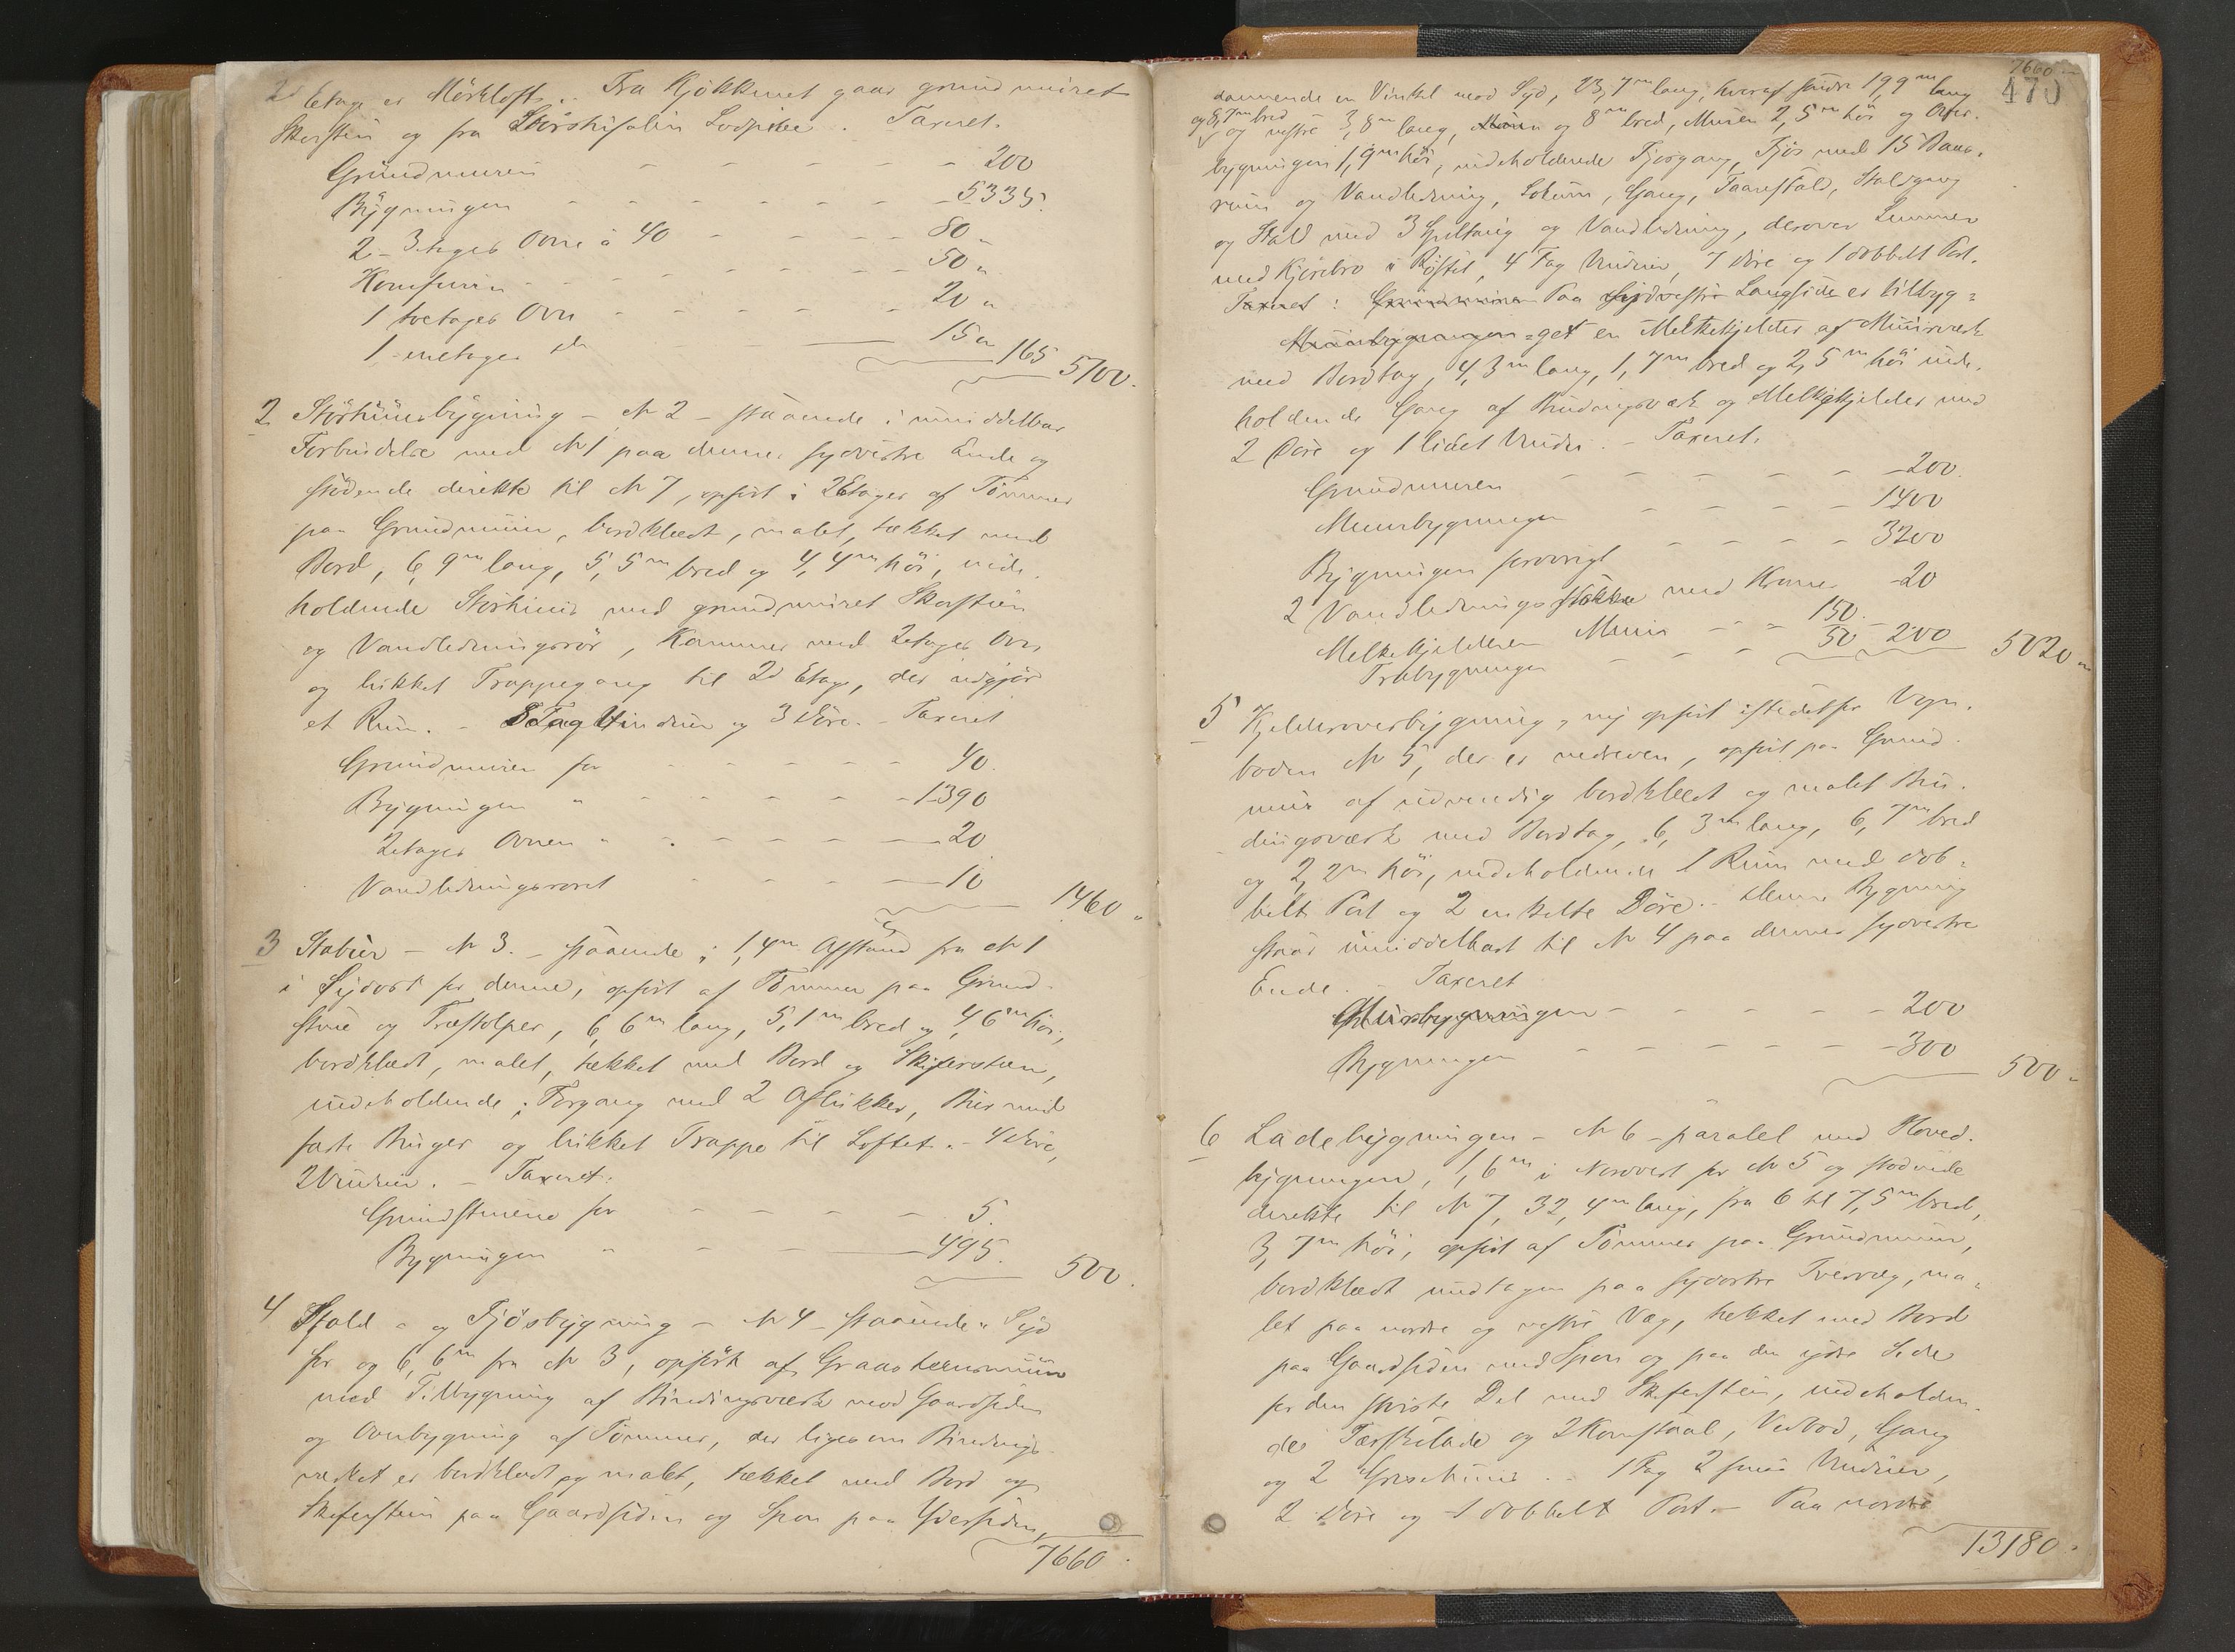 2d Etage er Mörkloft. . Fra Kjökkenet gaar grundmuret
Skorsten og fra Lodpibe. Taxeret.
Grundmuren - - - - - - 200
Bygningen - - - - - - - 5335.
2 - 3 etages Ovne à 40 - - - - - 80 "
Komfuren - - - - - - - 50 "
1 toetages Ovn - - - - - - 20 "
1 - enetages do - 15 " 165 5700.
2 Störhuusbygning - № 2 - staaende i umiddelbar
Forbindelse med № 1 paa dennes sydvestre Ende og
stödende direkte til № 7, opfört i 2 Etager af Tömmer
paa Grundmuur, bordklædt, malet, tækket med
Bord, 6,9m lang, 5,5m bred og 4,4m höi, inde-
holdende Störhuus med grundmuret Skorsten
og Vandledningsrör, Kammer med 2etages Ovn
og lukket Trappegang til 2d Etage, der udgjör
et Rum. - 3 Fag Vinduer og 3 Döre. - Taxeret
Grundmuren for - - - - - 40.
Bygningen " - - - - - 1390
2etages Ovnen " - - - - - 20
Vandledningsröret - - - - 10 1460 "
3 Stabur - № 3. - staaende i 1,4m Afstand fra № 1
i Sydost for denne, opfört af Tömmer paa Grund-
stene og Træstolper, 6,6m lang, 5,1m bred og 4,6m höi,
bordklædt, malet, tækket med Bord og Skifersten,
indeholdende: Forgang med 2 Aflukker, Bur med
faste Binger og lukket Trappe til Loftet. - 4 Döre,
2 Vinduer. - Taxeret:
Grundstenene for - - - - 5.
Bygningen " - - - 495. 500.
4 Stald - og Fjösbygning - № 4 - staaende i Syd
for og 6,6m fra № 3, opfört af Graasteensmuur
med Tilbygning af Bindingsværk mod Gaardsiden
og Overbygning af Tömmer, der ligesom Bindings-
værket er bordklædt og malet, tækket med Bord og
Skifersten paa Gaardsiden og Spon paa Ydersiden,
7660.
7660 -
470
dannende en Vinkel mod Syd, 23,7m lang, hvoraf söndre 19,9m lang
og 8,7m bred
og vestre 3,8m lang, og 8m bred, Muren 2,5m höi og Over-
bygningen 1,9m höi, indeholdende Fjösgang, Fjös med 15 Baas-
rum og Vandledning, Lokum, Gang, Faarestald, Staldgang
og Stald med 3 Spiltaug og Vandledning, derover Lemmer
med Kjörebro i Röstet, 4 Fag Vinduer, 7 Döre og 1 dobbelt Port.
Taxeret: Grundmuren Paa Sydvestre Langside er tilbyg=
Muurbygningen =get en Melkekjelder af Muurværk
med Bordtag, 4,3m lang, 1,7m bred og 2,5m höi inde-
holdende Gang af Bindingsværk og Melkekjelder med
2 Döre og 1 lidet Vindu. - Taxeret.
Grundmuren - - - - - - 200.
Muurbygningen - - - - 1400
Bygningen forövrigt - - - - 3200
2 Vandledningsstökke med Kraner - 20
Melkekjelderen Muur - - 150.
Træbygningen - - - 50 200 5020 "
5 Kjelderoverbygning, ny opfört istedetfor Vogn-
boden № 5, der er nedreven, opfört paa Grund-
muur af udvendig bordklædt og malet Bin-
dingsværk med Bordtag, 6,3m lang, 6,7m bred
og 2,2m höi, indeholdende 1 Rum med dob=
belt Port og 2 enkelte Döre. - Denne Bygning
staar umiddelbart til № 4 paa dennes sydvestre
Ende. - Taxeret
- - - - - 200
Bygningen - - - - - - 300 500 "
6 Ladebygningen - № 6 - paralel med Hoved-
bygningen, 1,6m i Nordvest for № 5 og stödende
direkte til № 7, 32,4m lang, fra 6 til 7,5m bred,
3,7m höi, opfört af Tömmer paa Grundmuur,
bordklædt undtagen paa sydvestre Tvervæg, ma=
let paa nordre og vestre Væg, tækket med Bord
paa Gaardsiden med Spon og paa den ydre Side
for den störste Del med Skifersten, indeholden-
de Tærskelade og 2 Kornstaal, Vedbod, Gang
og 2 Grisehuus. - 1 Fag 2 smaa Vinduer,
2 Döre og 1 dobbelt Port. - Paa nordre
13180.